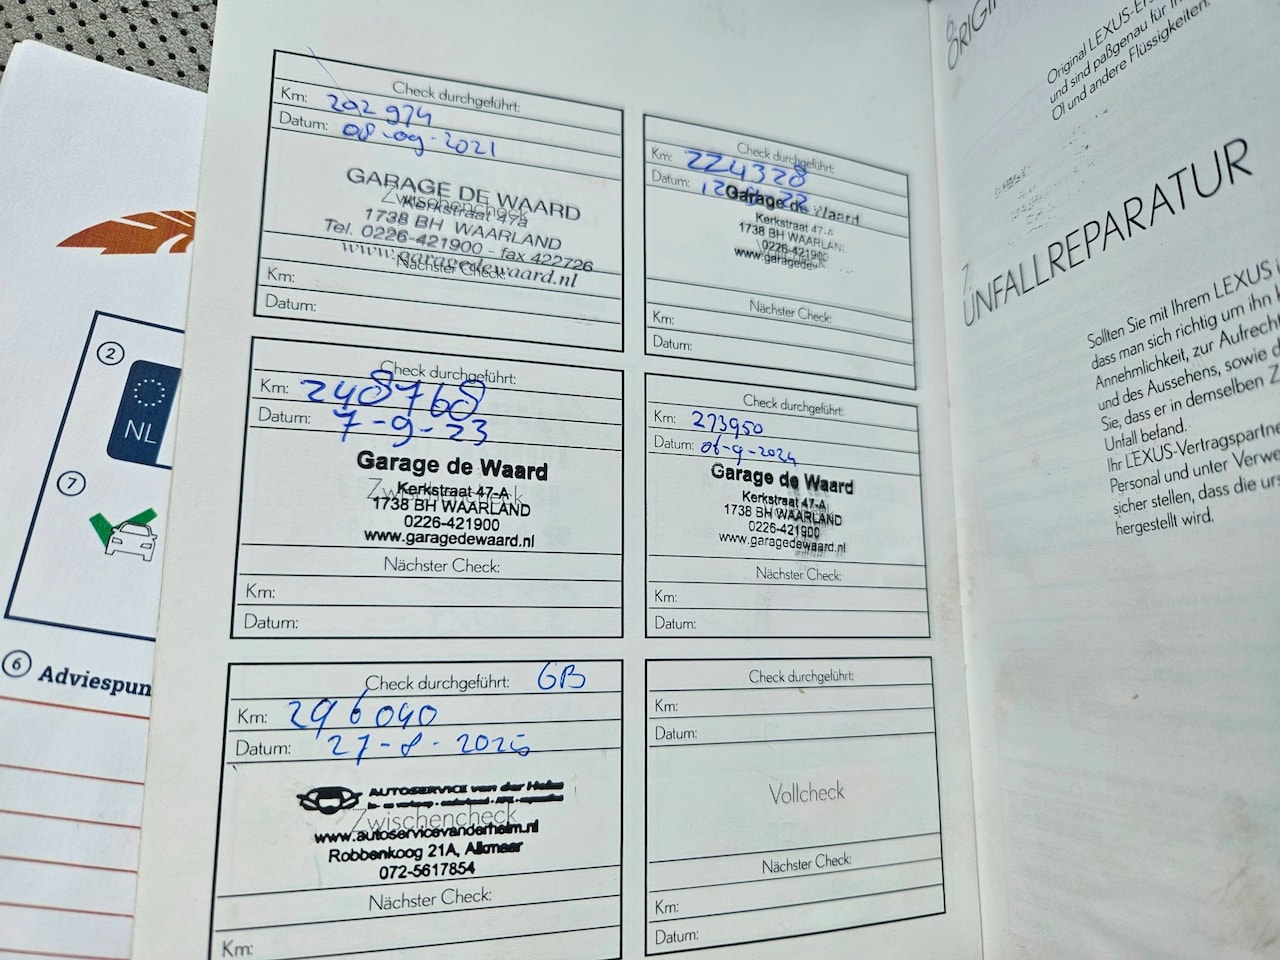 Check durchgeführt:
Km: 202 974
Datum: 08-09-2021
GARAGE DE WAARD
Zwischencheck
Kerkstraat 47a
1738 BH WAARLAND
Tel. 0226-421900 - fax 422726
www.garagedewaard.nl
Nächster Check:
Km:
Datum:
Check durchgeführt:
Km: 224328
Datum:
Garage de Waard
Kerkstraat 47-A
1738 BH WAARLAN
0226-421900
www.garagedew
Nächster Check:
Km:
Datum:
Check durchgeführt:
Km: 248768
Datum: 7-9-23
Garage de Waard
Kerkstraat 47-A
Zwischencheck
1738 BH WAARLAND
0226-421900
www.garagedewaard.nl
Nächster Check:
Km:
Datum:
Check durchgeführt:
Km: 273950
Datum: 06-9-2024
Garage de Waard
Kerkstraat 47-A
1738 BH WAARLAND
0226-421900
www.garagedewaard.nl
Nächster Check:
Km:
Datum:
Check durchgeführt: GB
Km: 296040
Datum: 27-8-2025
AUTOSERVICE van der Helm
Zwischencheck
www.autoservicevanderhelm.nl
Robbenkoog 21A, Alkmaar
072-5617854
Nächster Check:
Km:
Check durchgeführt:
Km:
Datum:
Vollcheck
Nächster Check:
Km:
Datum:
2
NL
7
6 Adviespun
6.
ORIGIN
Original LEXUS-Ers
und sind paßgenau für Ih
Öl und andere Flüssigkeiten.
7.
UNFALLREPARATUR
Sollten Sie mit Ihrem LEXUS i
dass man sich richtig um ihn k
Annehmlichkeit, zur Aufrecht
und des Aussehens, sowie d
Sie, dass er in demselben Z
Unfall befand.
Ihr LEXUS-Vertragspartne
Personal und unter Verwe
sicher stellen, dass die urs
hergestellt wird.